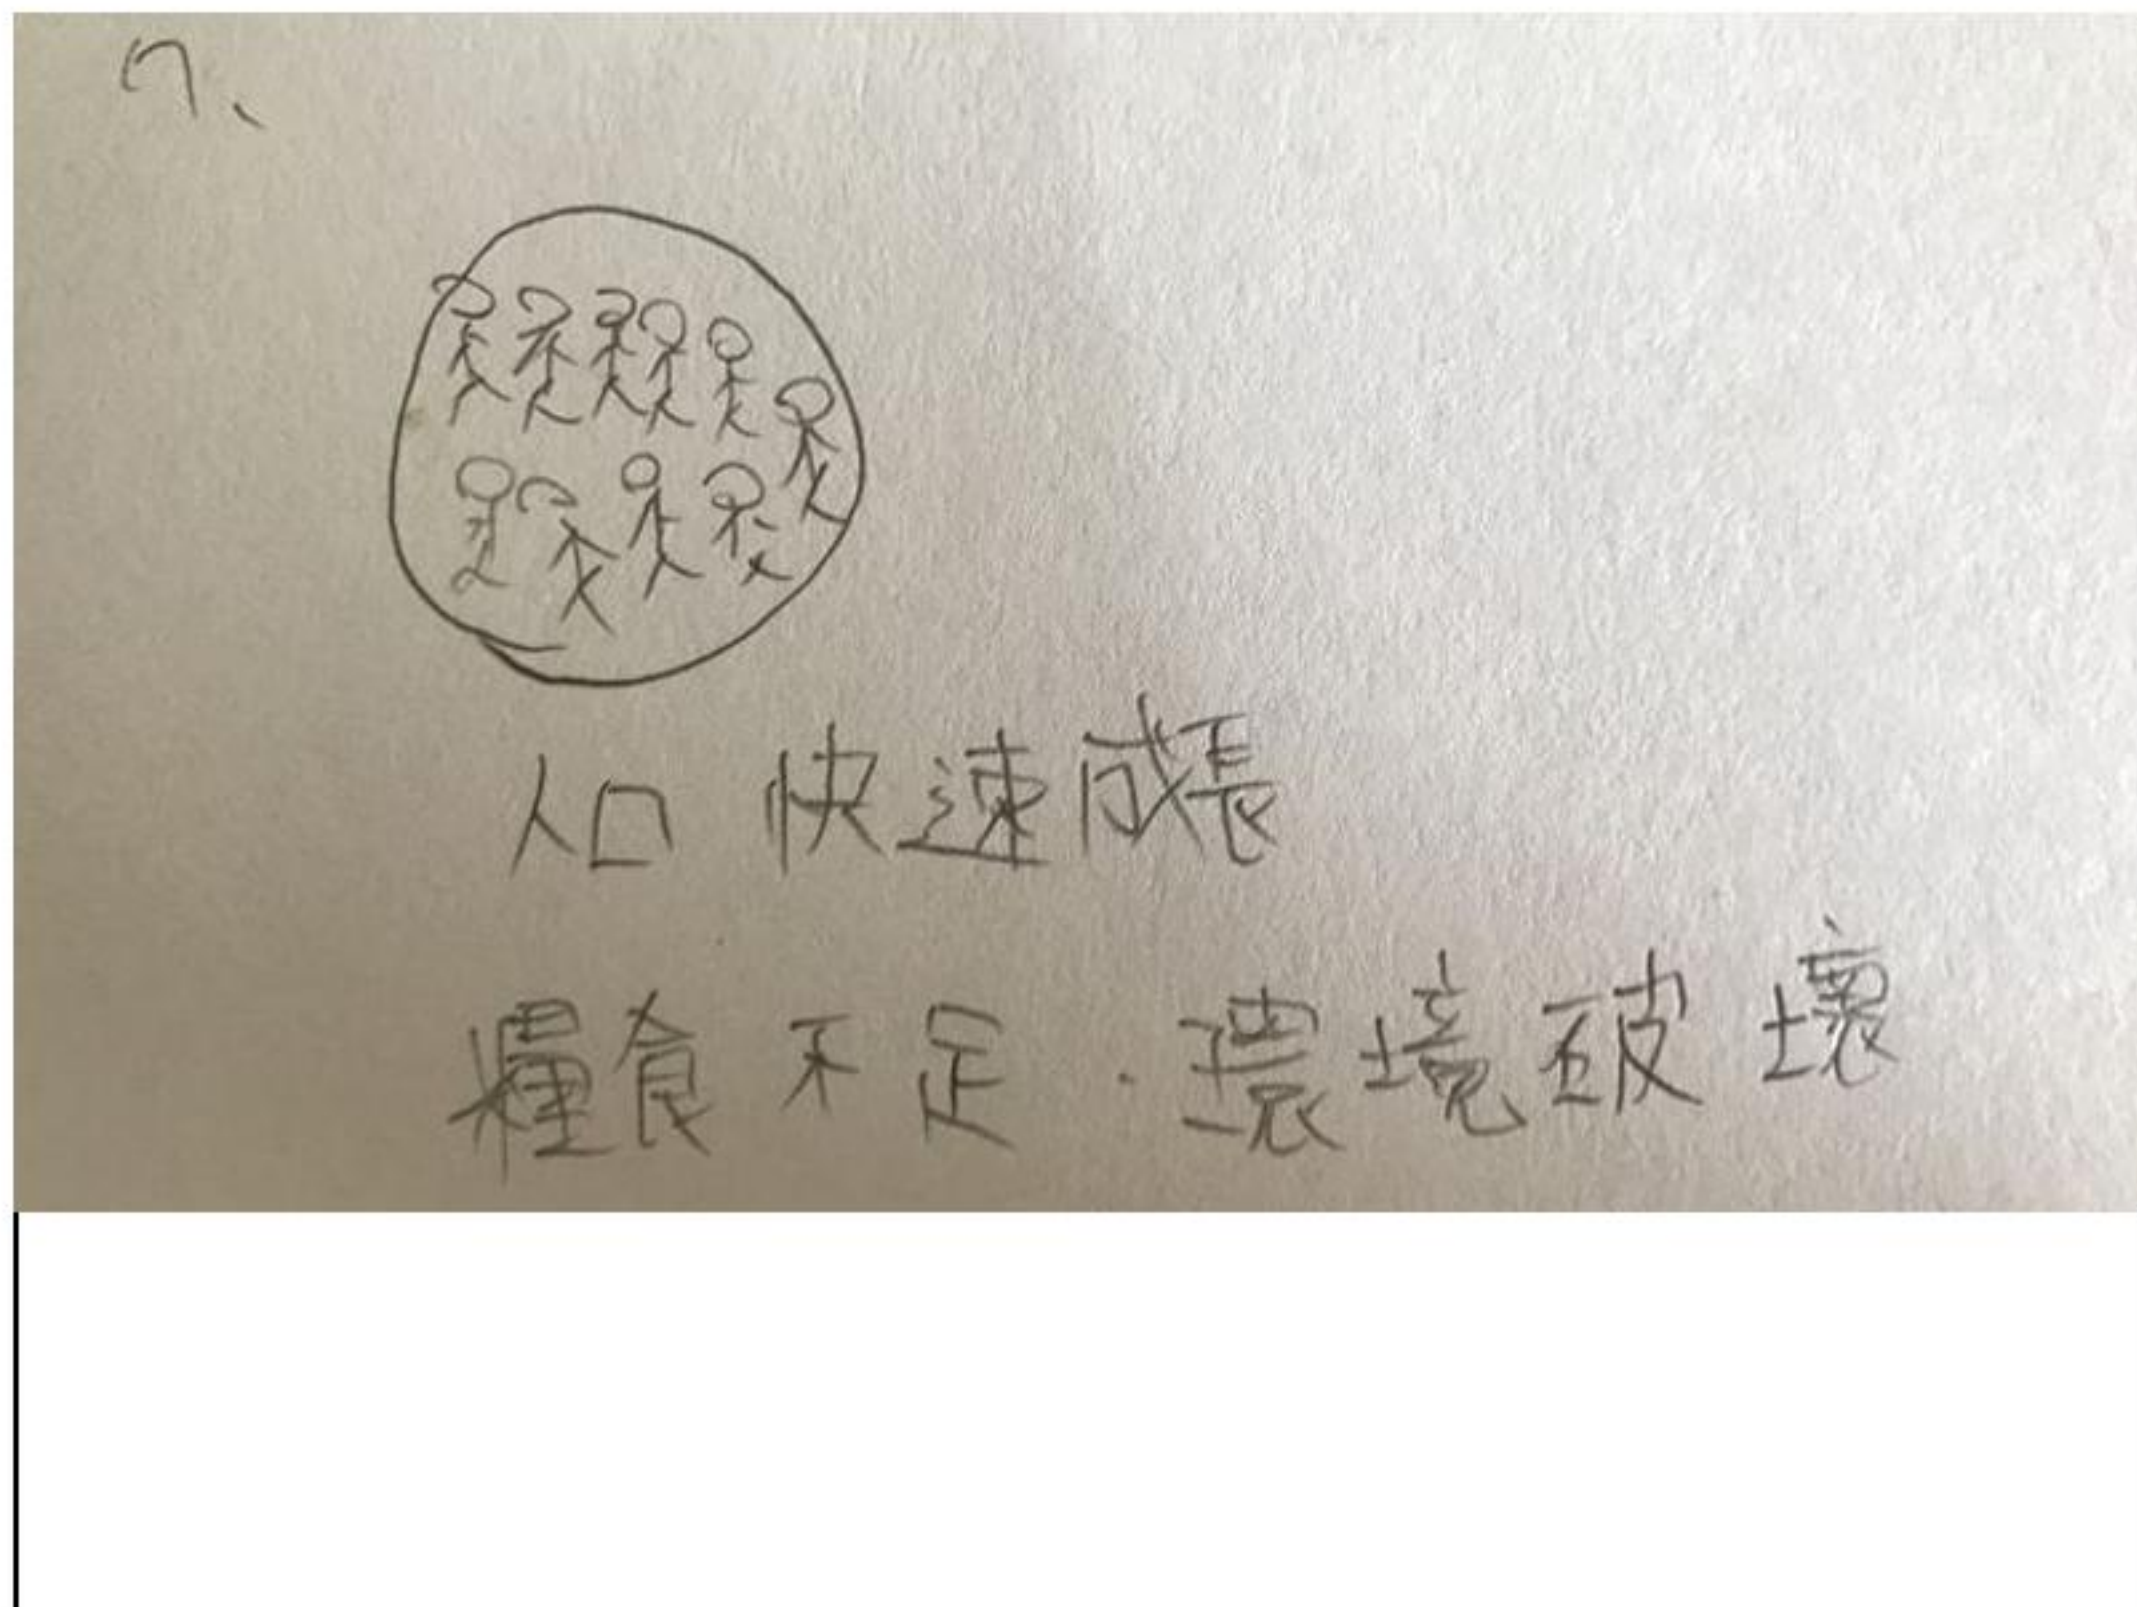 7、
人口快速成長
糧食不足．環境破壞